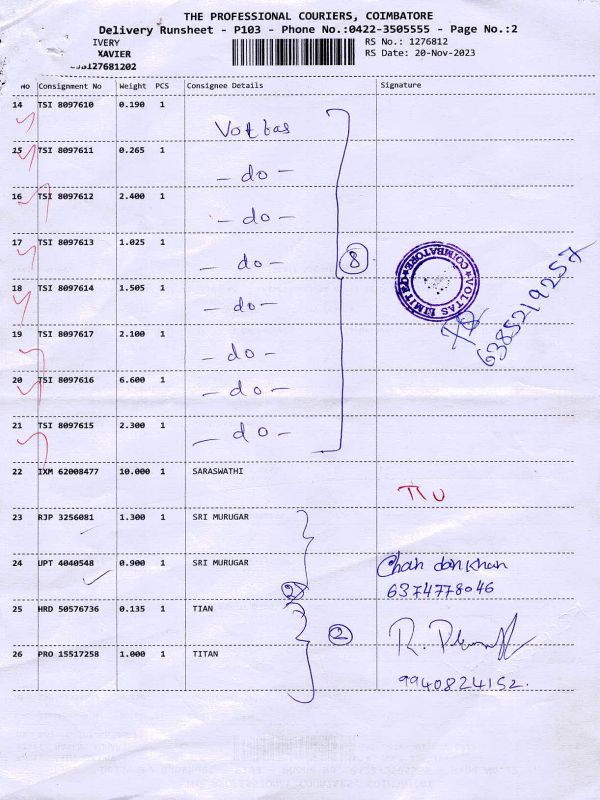 THE PROFESSIONAL COURIERS, COIMBATORE
Delivery Runsheet - P103 - Phone No.:0422-3505555 - Page No.:2
IVERY
XAVIER
127681202
RS No.: 1276812
RS Date: 20-Nov-2023
NO Consignment No Weight PCS Consignee Details Signature
14 TSI 8097610 0.190 1 Voltas
15 TSI 8097611 0.265 1 - do -
16 TSI 8097612 2.400 1 - do -
17 TSI 8097613 1.025 1 - do - 8
VOLTAS LIMITED COIMBATORE
6385219257
18 TSI 8097614 1.505 1 - do -
19 TSI 8097617 2.100 1 - do -
20 TSI 8097616 6.600 1 - do -
21 TSI 8097615 2.300 1 - do -
22 IXM 62008477 10.000 1 SARASWATHI
23 RJP 3256081 1.300 1 SRI MURUGAR
24 UPT 4040548 0.900 1 SRI MURUGAR Chan dan Khan
6374778046
25 HRD 50576736 0.135 1 TIAN 2
26 PRO 15517258 1.000 1 TITAN
9940824152.